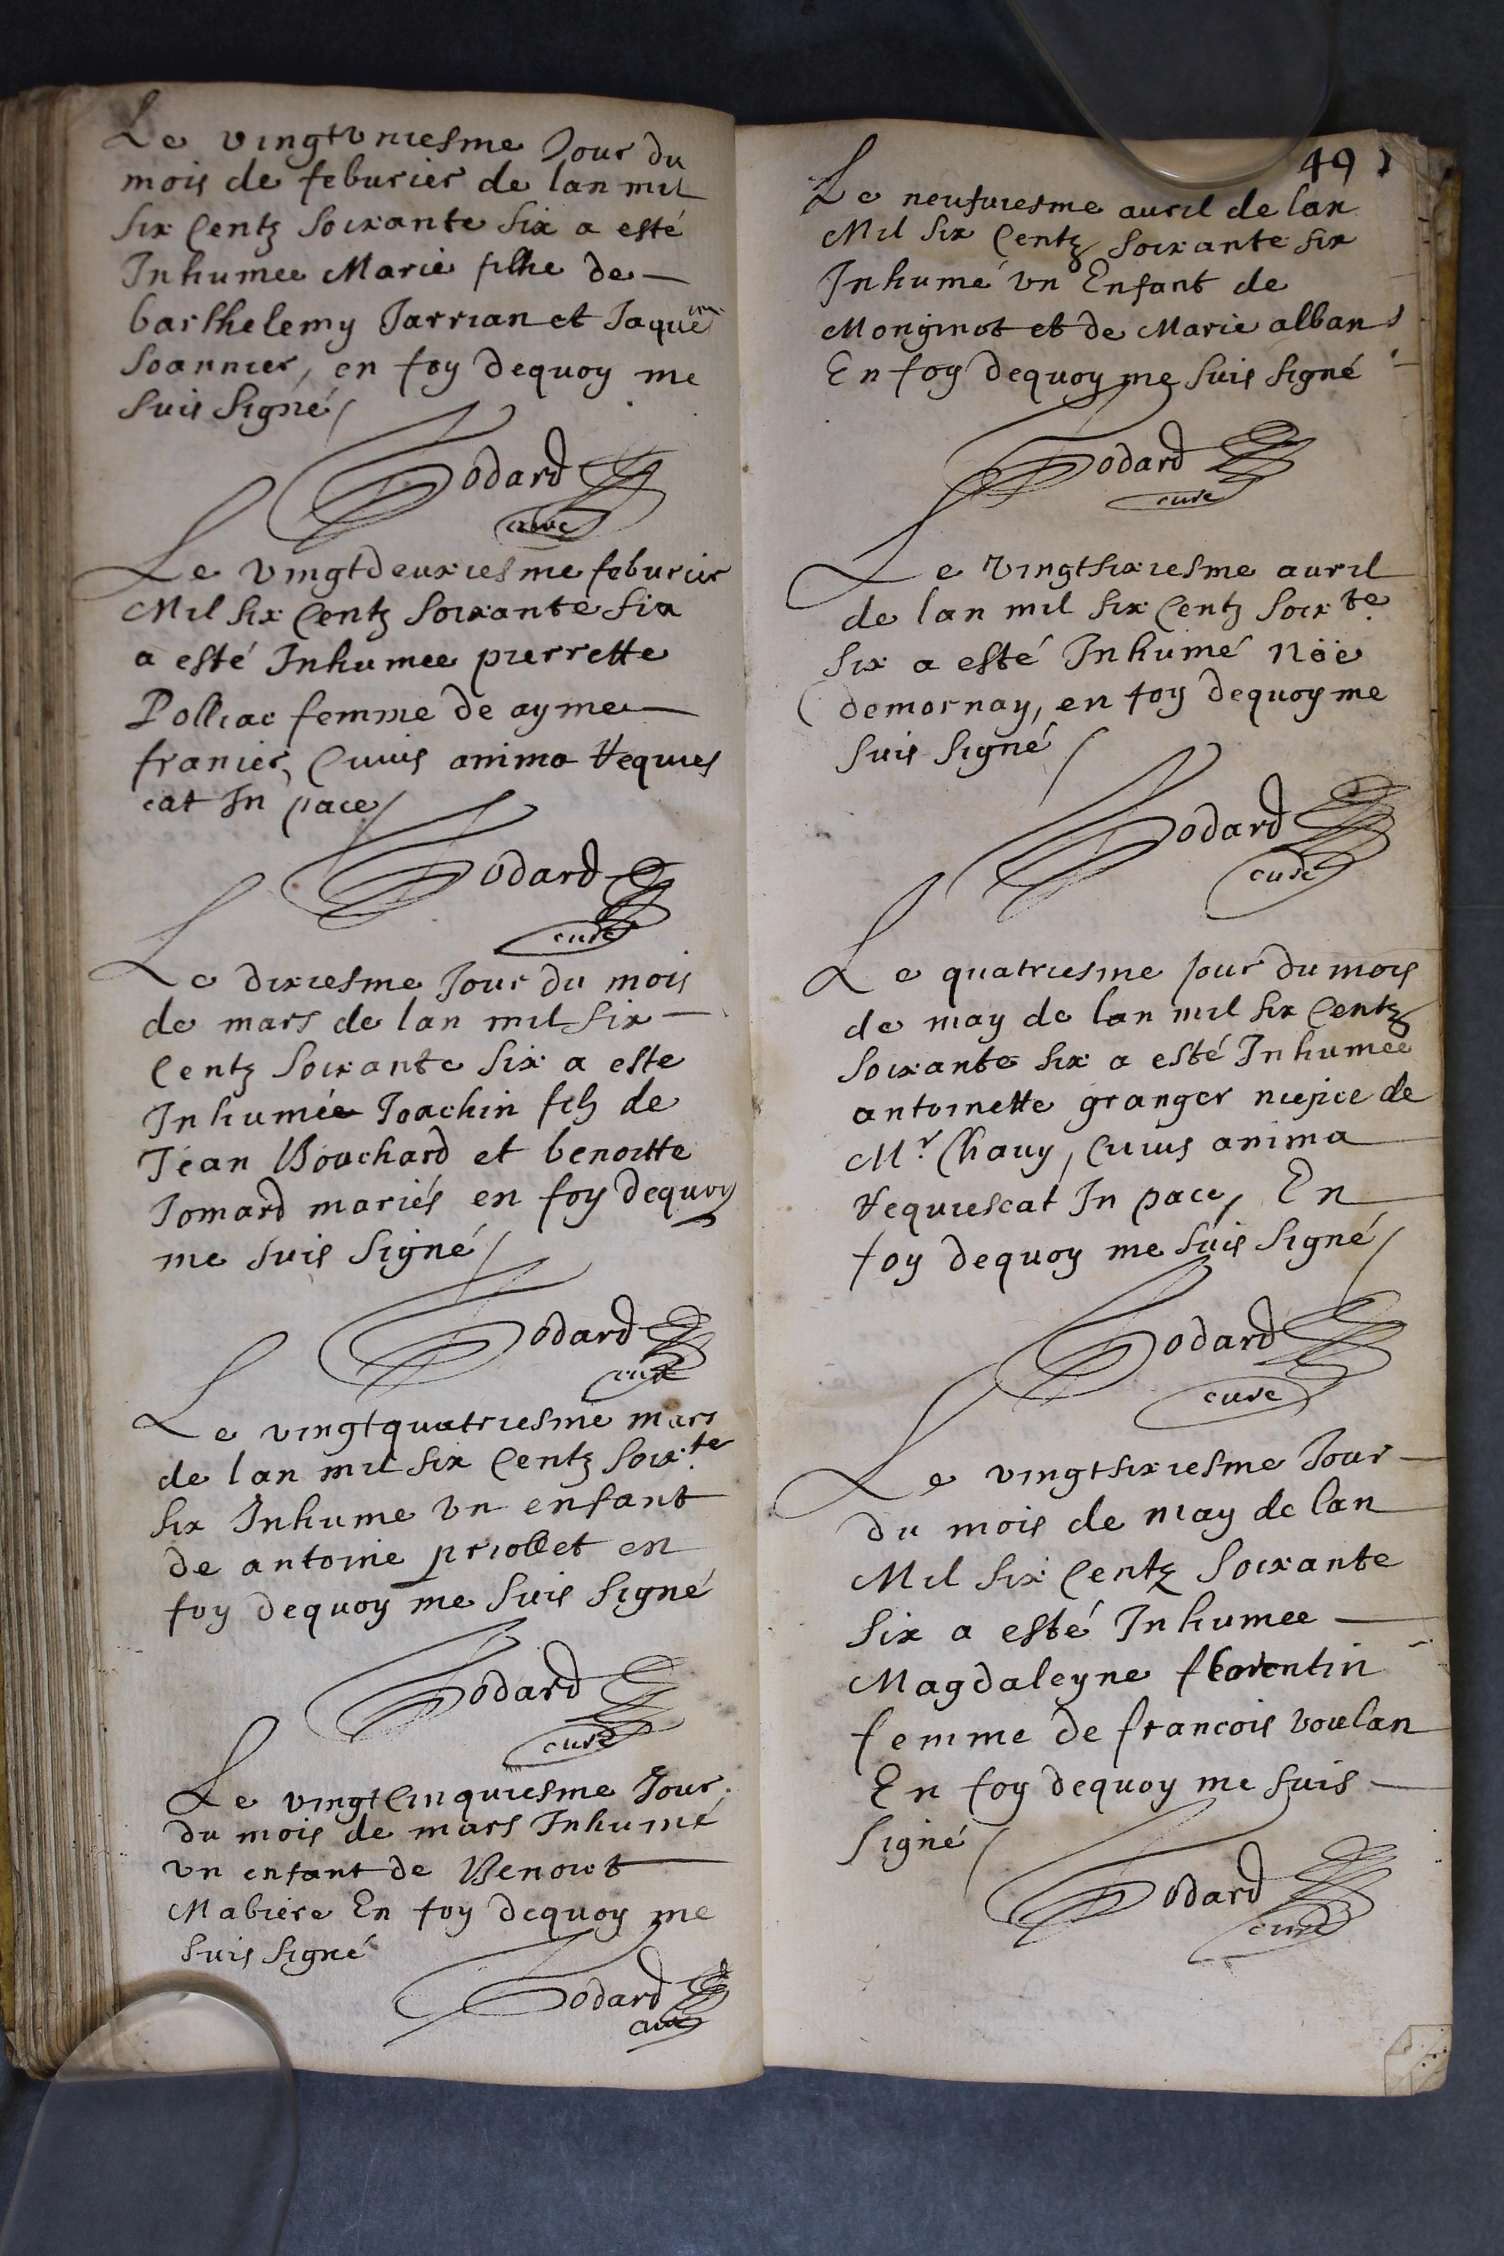 Le vingtvniesme Jour du
mois de feburier de lan mil
six Centz soixante six a esté
Inhumee Marie filhe de
barthelemy Jarrian et Jaquem
Joannier, en foy dequoy me
suis signé
Godard
curé
Le vingtdeuxiesme feburier
Mil six Centz soixante six
a esté Inhumee pierrette
Polliac femme de ayme
franier, Cuuis anima requies
cat In pace
Godard
curé
Le dixiesme Jour du mois
de mars de lan mil six
Centz soixante six a este
Inhumée Joachin filz de
Jean Bouchard et benoitte
Jomard mariés en foy dequoy
me suis signé
Godard
curé
Le vingtquatriesme mars
de lan mil six Centz soix.te
six Inhume vn enfant
de antoine priollet en
foy dequoy me suis signé
Godard
curé
Le vingtCinquiesme Jour
du mois de mars Inhumé
vn enfant de Benoict
Mabiere En foy dequoy me
suis signé
Godard
curé
49
Le neufuiesme auril de lan
Mil six Centz soixante six
Inhumé vn Enfant de
Monginot et de Marie alban
En foy dequoy me suis signé
Godard
curé
Le vingtsixiesme auril
de lan mil six Centz soix.te
six a esté Inhumé Nöe
demornay, en foy dequoy me
suis signé
Godard
curé
Le quatriesme jour du mois
de may de lan mil six Centz
soixante six a esté Inhumée
antoinette granger niepce de
Mr. Chauy, Cuius anima
requiescat In pace, En
foy dequoy me suis signé
Godard
curé
Le vingtsixiesme Jour
du mois de may de lan
Mil six Centz soixante
six a esté Inhumee
Magdaleyne florentin
femme de francois voulan
En foy dequoy me suis
signé
Godard
curé